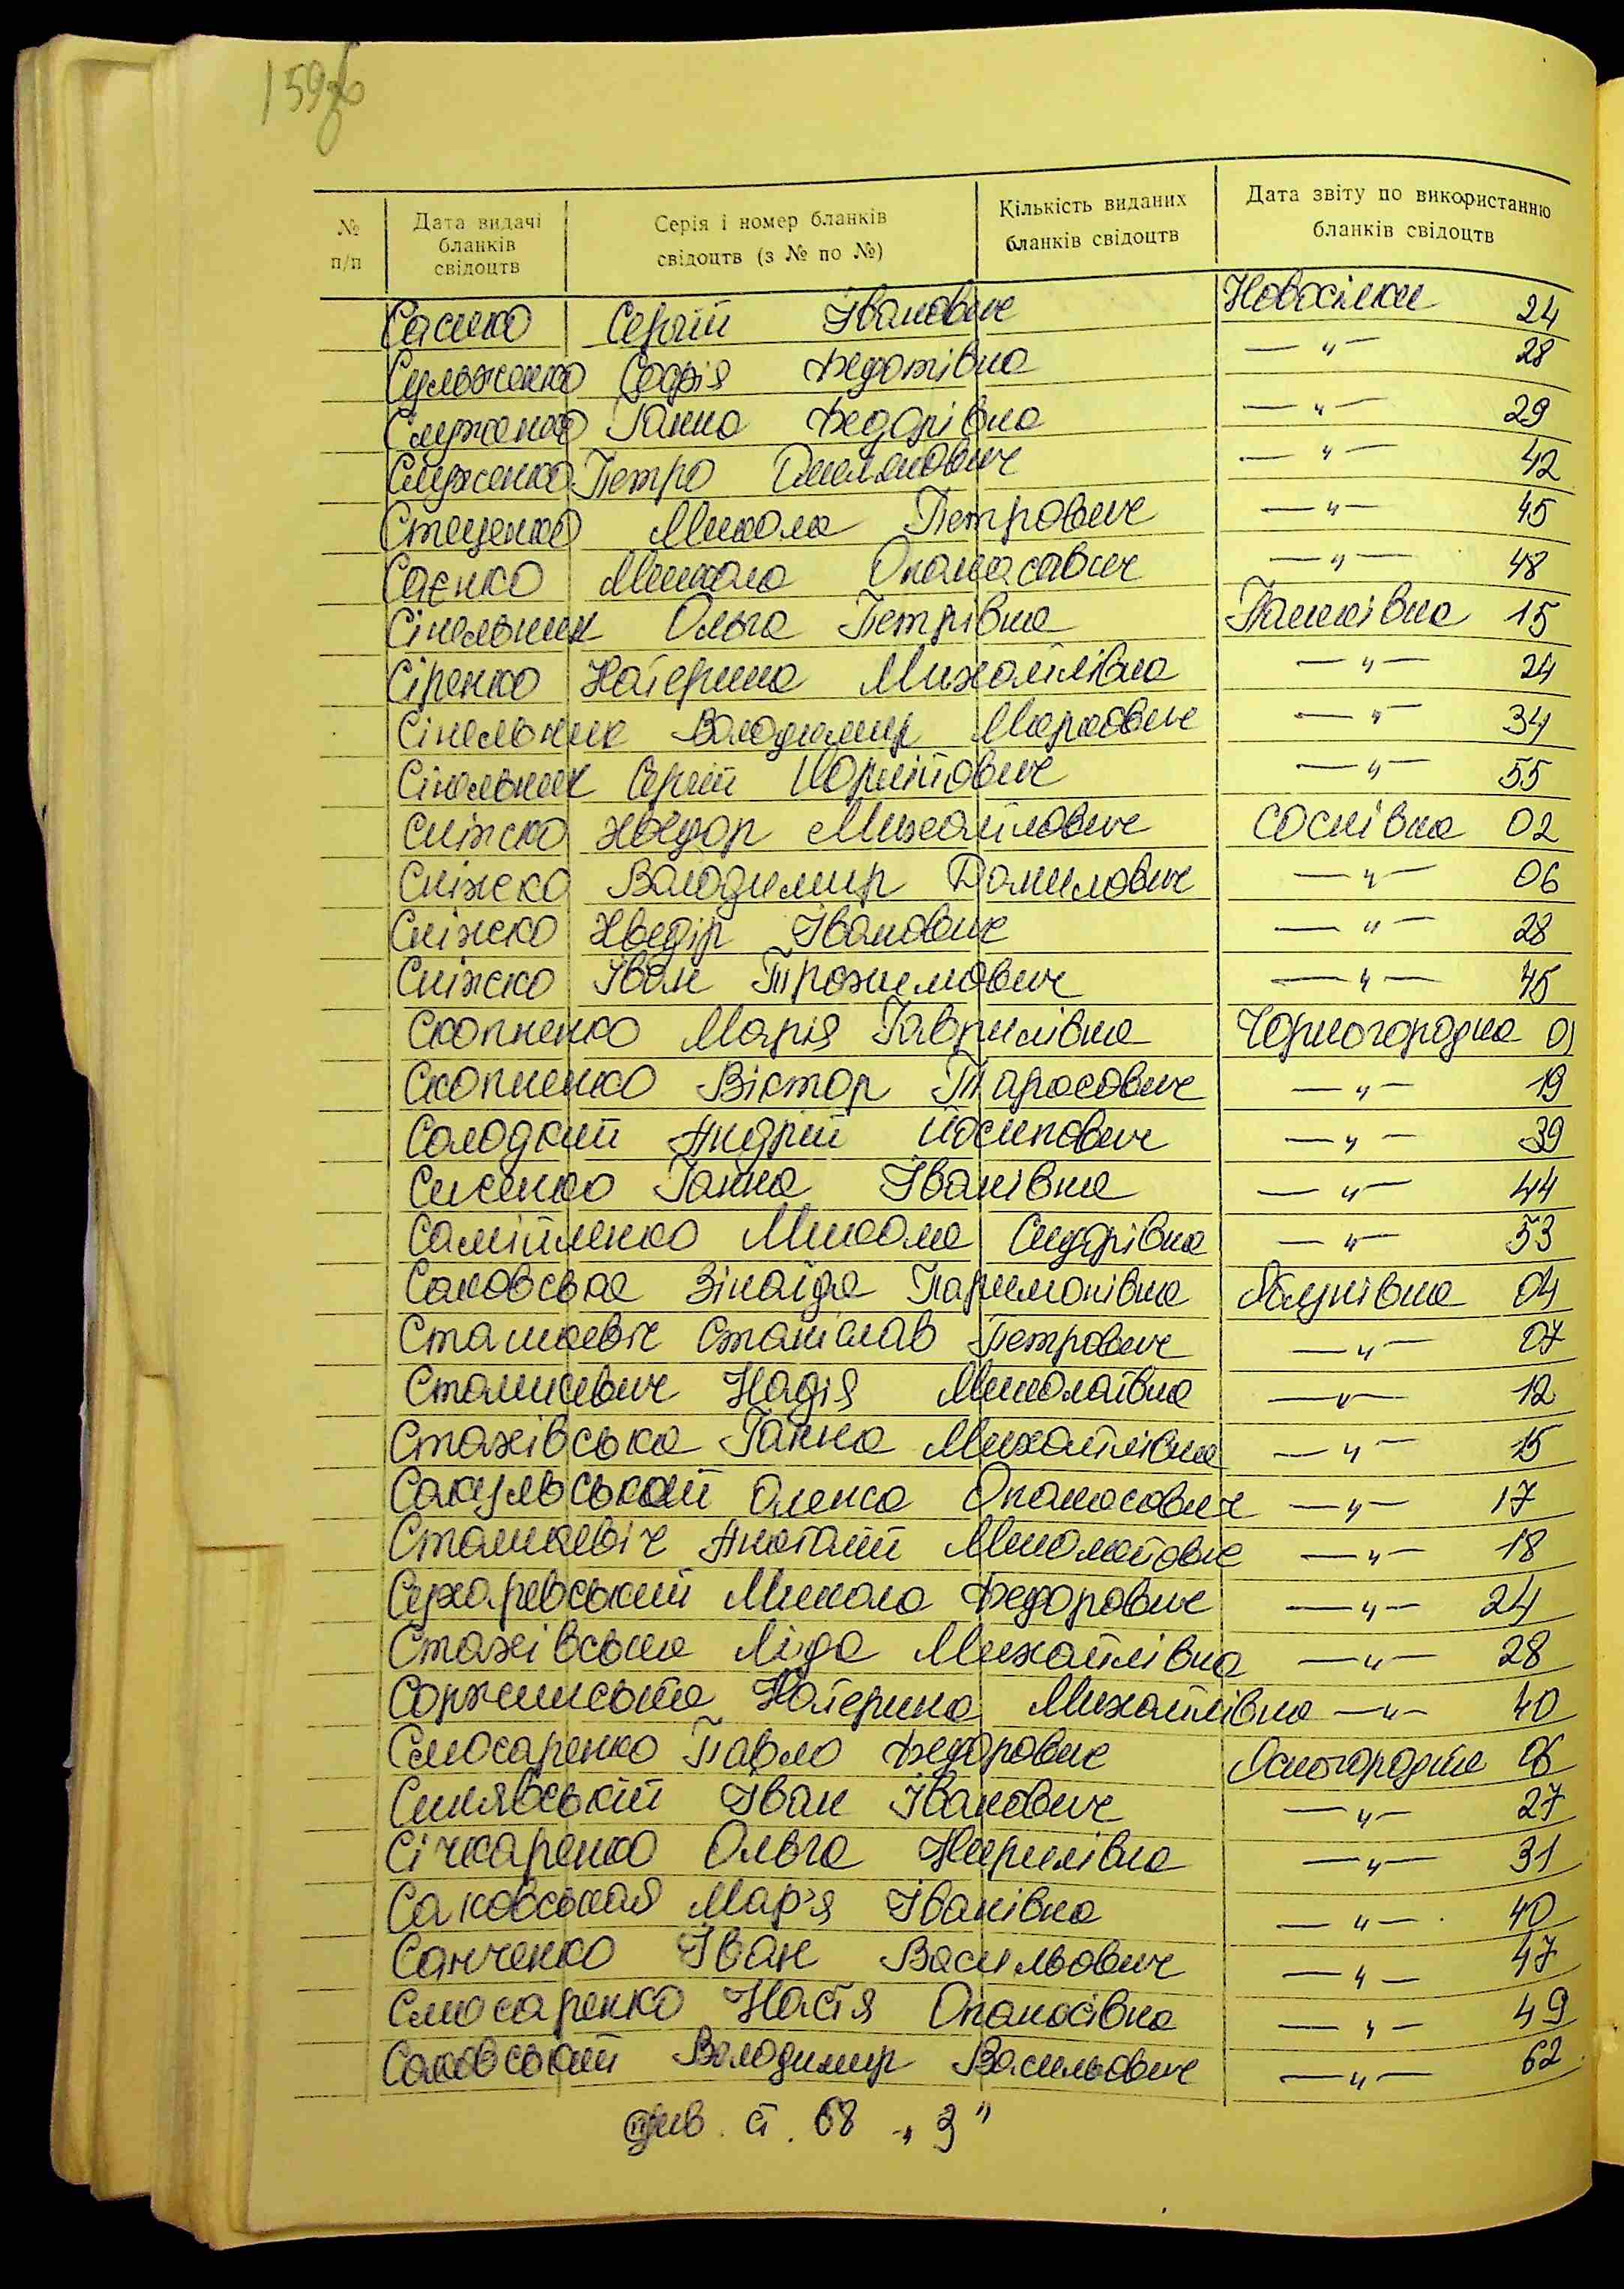 159зв
№ п/п
Дата видачі бланків свідоцтв
Серія і номер бланків свідоцтв (з № по №)
Кількість виданих бланків свідоцтв
Дата звіту по використанню бланків свідоцтв
Сасико Сергій Іванович Новосілки 24
Сульженко Софія Федотівна —"— 28
Служенко Ганна Федорівна —"— 29
Служенко Петро Омелянович —"— 42
Стеценко Микола Петрович —"— 45
Саєнко Микола Опанасович —"— 48
Сінельник Ольга Петрівна Пашківка 15
Сіренко Катерина Михайлівна —"— 24
Сінельник Володимир Маркович —"— 34
Сінельник Сергій Корнійович —"— 55
Сніжко Хведор Михайлович Соснівка 02
Сніжко Володимир Данилович —"— 06
Сніжко Хведір Іванович —"— 28
Сніжко Іван Трохимович —"— 45
Скопненко Марія Гаврилівна Чорногородка 01
Скопненко Віктор Тарасович —"— 19
Солодкий Андрій Йосипович —"— 39
Сисенко Ганна Іванівна —"— 44
Самійленко Микола Сидорівна —"— 53
Саковська Зінаїда Паримонівна Яблунівка 04
Сташкевіч Станіслав Петрович —"— 07
Сташкевич Надія Миколаївна —"— 12
Стахівська Ганна Михайлівна —"— 15
Сакульський Олекса Опанасович —"— 17
Сташкевіч Анатолій Миколайович —"— 18
Сухаревський Микола Федорович —"— 24
Стахівська Ліда Михайлівна —"— 28
Соржинська Катерина Михайлівна —"— 40
Слюсаренко Павло Федорович Ясногородка 06
Синявський Іван Іванович —"— 27
Січкаренко Ольга Кирилівна —"— 31
Саковськая Мар'я Іванівна —"— 40
Санченко Іван Васильович —"— 47
Слюсаренко Настя Опанасівна —"— 49
Саковський Володимир Васильович —"— 62
див. ст. 68 „З"